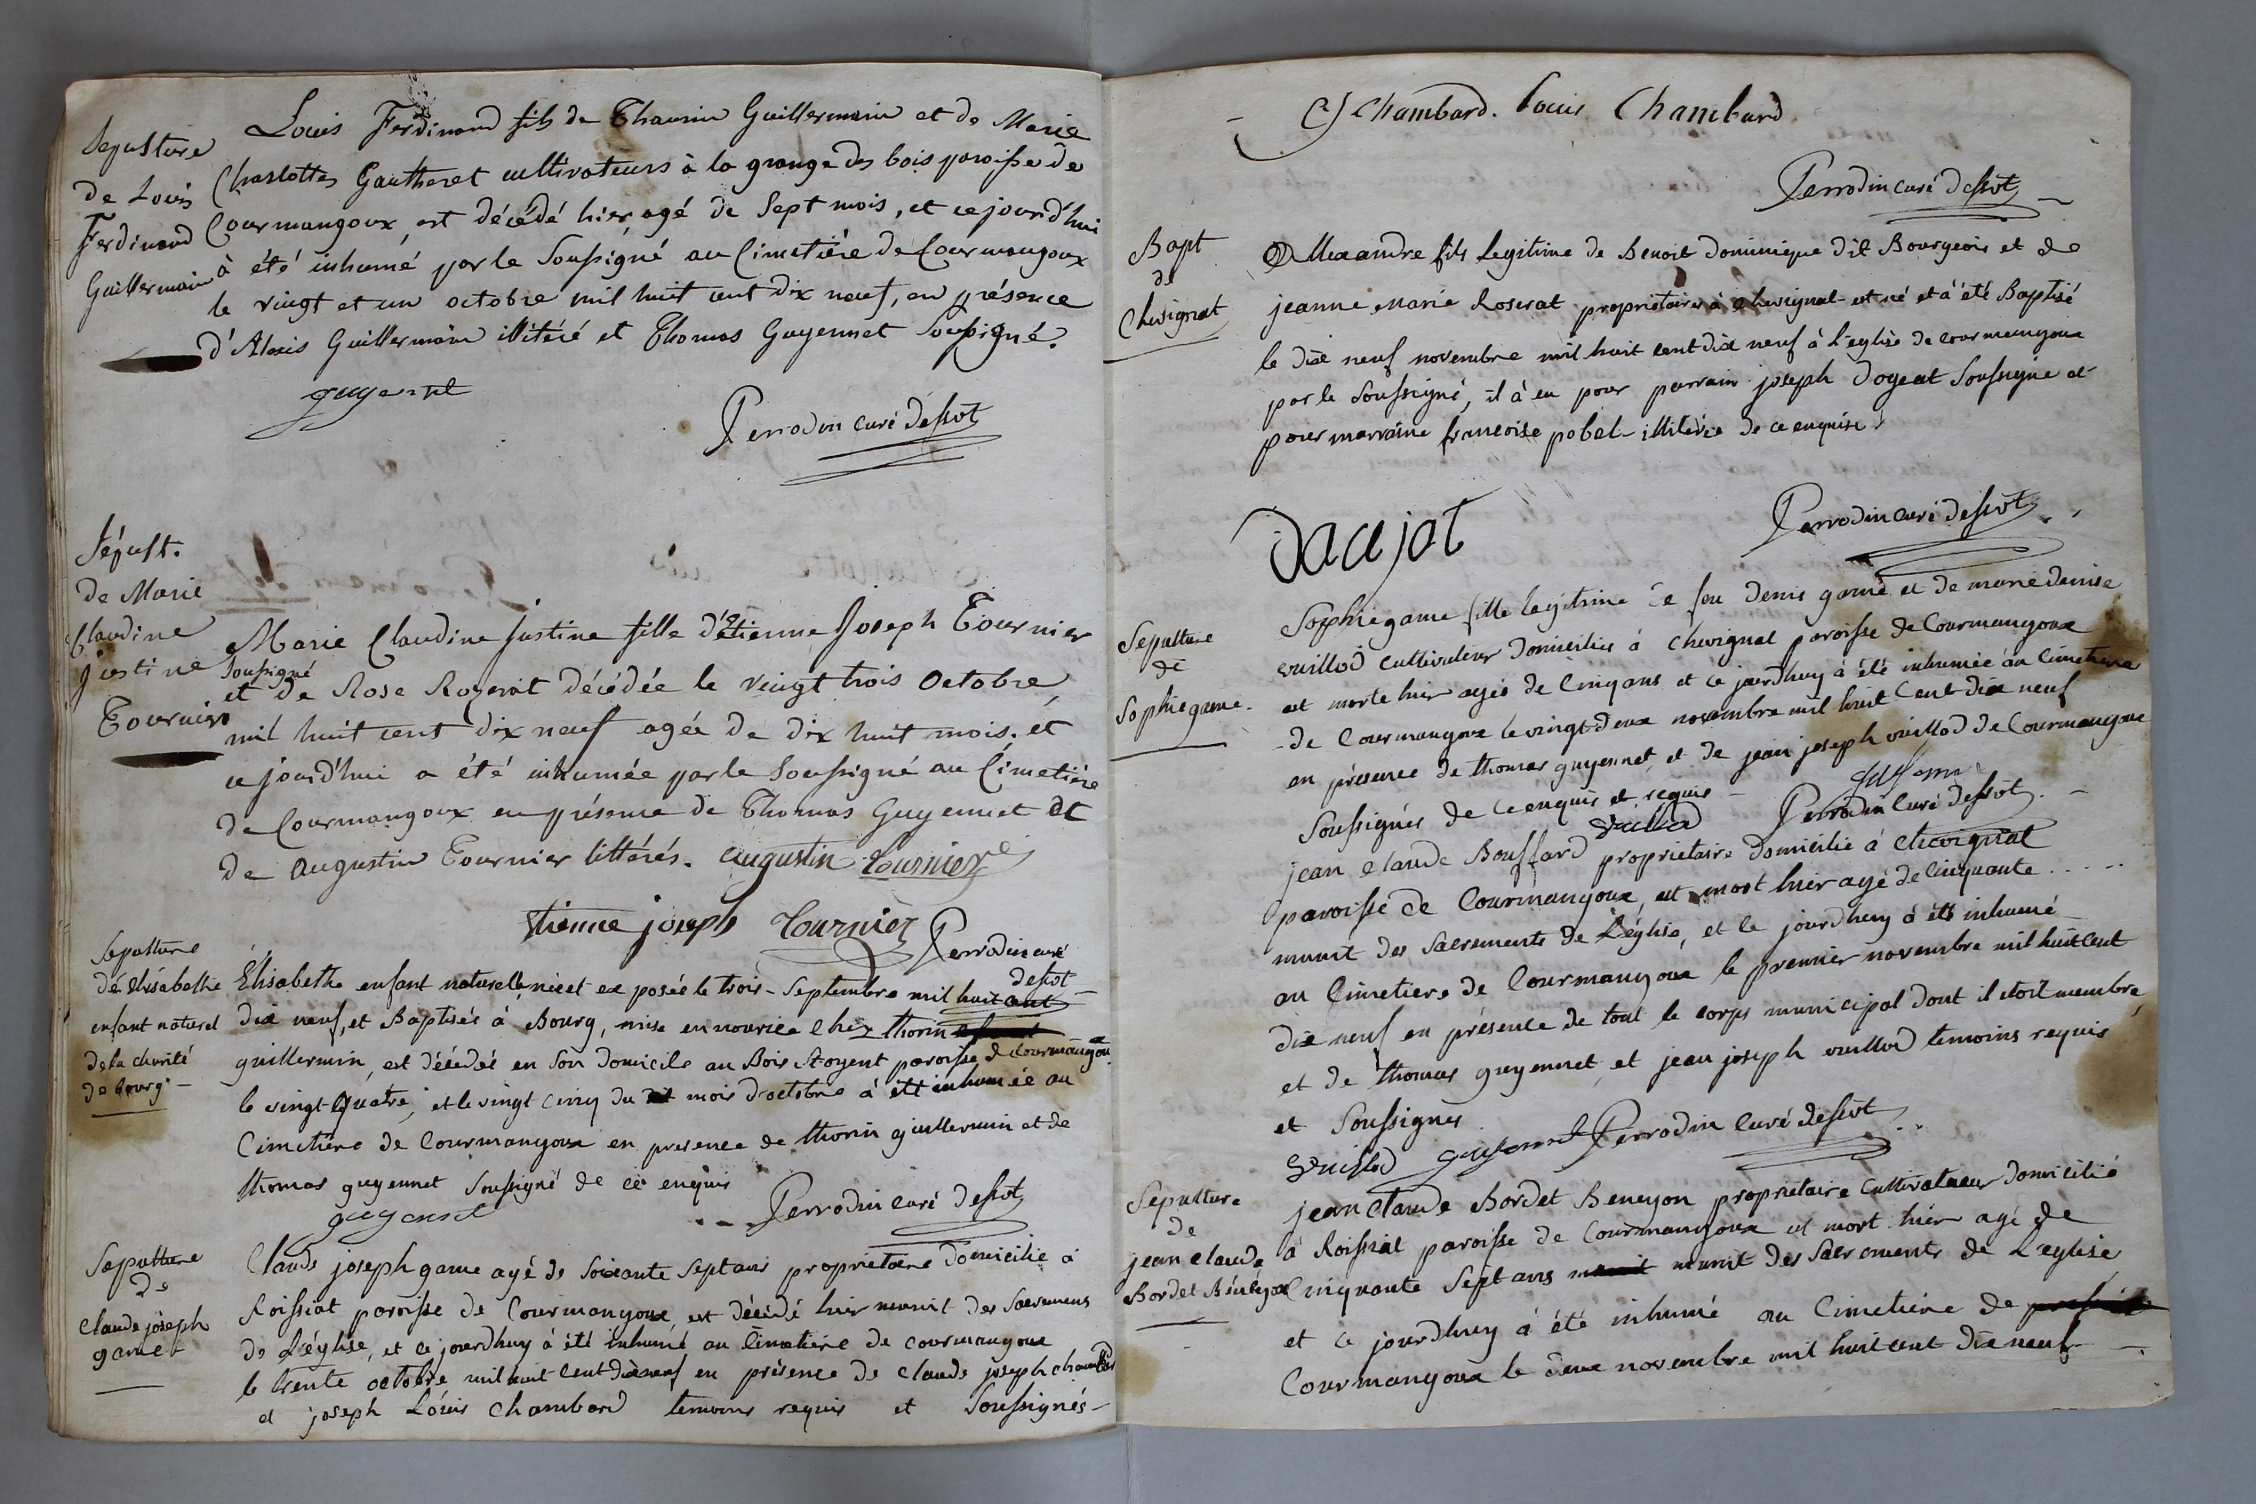 Sepulture
de Louis
Ferdinand
Guillermain
Louis Ferdinand fils de Thaurin Guillermain et de Marie
Charlottes Gautheret cultivateurs à la grange des bois paroisse de
Courmangoux, est décédé hier, agé de Sept mois, et ce jourd'hui
à été inhumé par le Soussigné au Cimetière de Courmangoux
le vingt et un octobre mil huit cent dix neuf, en présence
d'Alexis Guillermain illitéré et Thomas Guyennet Soussigné.
guyennet
Perrodin curé dessvt
Sépult.
de Marie
Claudine
Justine
Tournier
Marie Claudine Justine fille d'étienne Joseph Tournier
soussigné
et de Rose Rozerat décédée le vingt trois Octobre
mil huit cent dix neuf agée de dix huit mois, et
ce jourd'hui a été inhumée par le Soussigné au Cimetière
de Courmangoux en présence de Thomas Guyennet et
de Augustin Tournier littérés. augustin tournier
Etienne joseph tournier
Perrodin curé
dessvt
Sepulture
de Elisabethe
enfant naturel
de la charité
de bourg
Élisabethe enfant naturelle, née et exposée le trois Septembre mil huit cent
dix neuf, et Baptisée à Bourg, mise en nourice chez thorin
guillermin, est décédée en son domicile au Bois stoyent paroisse de Courmangoux
le vingt-quatre, et le vingt cinq du mois d'octobre à été inhumée au
Cimetière de Courmangoux en presence de thorin guillermin et de
thomas guyennet soussigné de ce enquis
guyennet
Perrodin curé dessvt
Sepulture
de
claude joseph
game
Claude joseph game agé de soixante sept ans proprietaire domicilié à
Roissiat paroisse de Courmangoux, est décédé hier munit des Sacremens
de L'église, et ce jourdhuy à été inhumé au Cimetière de courmangoux
le trente octobre mil huit cent dix neuf en présence de claude joseph chambard
et joseph Louis chambard temoins requis et Soussignés
Cj chambard. Louis Chambard
Perrodin curé dessvt
Bapt
de
Chevignat
Allexandre fils legitime de Benoit dominique dit Bourgeois et de
jeanne marie Roserat proprietaires à chevignat est né et à été Baptisé
le dix neuf novembre mil huit cent dix neuf à L'eglise de courmangoux
par le Soussigné, il à eu pour parrain joseph Dogeat Soussigné et
pour marraine francoise pobel illiterée de ce enquise
Daujat
Perrodin curé dessvt
Sepulture
de
Sophie game
Sophie game fille legitime de feu Denis game et de marie denise
vuillod cultivateur domiciliés à chevignat paroisse de Courmangoux
est morte hier agée de Cinq ans et ce jourdhuy à été inhumée au Cimetiere
de Courmangoux le vingt-deux novembre mil huit Cent dix neuf
en présence de thomas guyennet, et de jean joseph vuillod de Courmangoux
Soussignés de ce enquis et requis
Vuillod
Perrodin curé dessvt
jean claude Bouffard proprietaire domicilié à chevignat
paroisse de Courmangoux, est mort hier agé de Cinquante . . . . .
munit des sacrements de L'église, et ce jourdhuy à été inhumé
au Cimetiere de Courmangoux le premier novembre mil huit cent
dix neuf en présence de tout le corps municipal dont il etoit membre
et de thomas guyennet, et jean joseph vuillod temoins requis
et Soussignés
Vuillod guyennet Perrodin curé dessvt
Sepulture
de
jean claude
Bordet Benéyon
jean claude Bordet Beneyon proprietaire cultivateur domicilié
à Roissiat paroisse de Courmangoux est mort hier agé de
Cinquante sept ans munit des sacrements de L'eglise
et ce jourdhuy à été inhumé au Cimetiere de
Courmangoux le deux novembre mil huit cent dix neuf